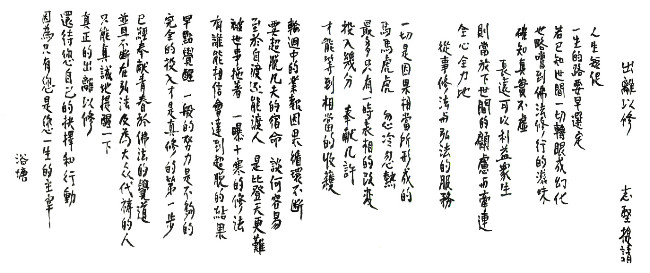 出離以修
志堅 請
人生短促
一生的路要早選定
若已知世間一切轉眼成幻化
也略嚐到佛法修行的滋味
確知真實不虛
長遠可以利益眾生
則當放下世間的顧慮而
全心全力地
從事修法而弘法的服務
一切是因果相當所形成的
馬馬虎虎 忽冷忽熱
最多只有一時表相的改變
投入幾分 奉獻幾許
才能等到相當的收穫
輪迴中的業報因果循環不斷
要超脫凡夫的宿命 談何容易
至於自渡還能渡人 是比登天更難
被世事拖著 一曝十寒的修法
有誰能相信會達到超脫的結果
早點覺醒 一般的努力是不夠的
完全的投入才是真修的第一步
已經奉獻青春於佛法的覺道
並且不斷在弘法及為大眾代禱的人
只能真誠地提醒一下
真正的出離以修
還待您自己的抉擇和行動
因為只有您是您一生的主宰